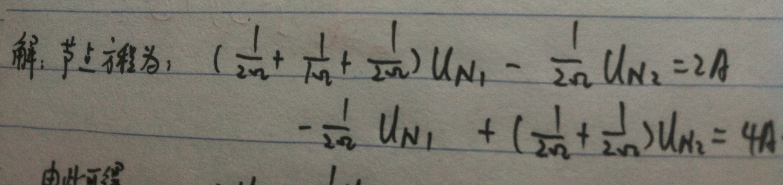 解：节点方程为：(1/2Ω + 1/1Ω + 1/2Ω) U_N1 - 1/2Ω U_N2 = 2A
- 1/2Ω U_N1 + (1/2Ω + 1/2Ω) U_N2 = 4A
由此可得